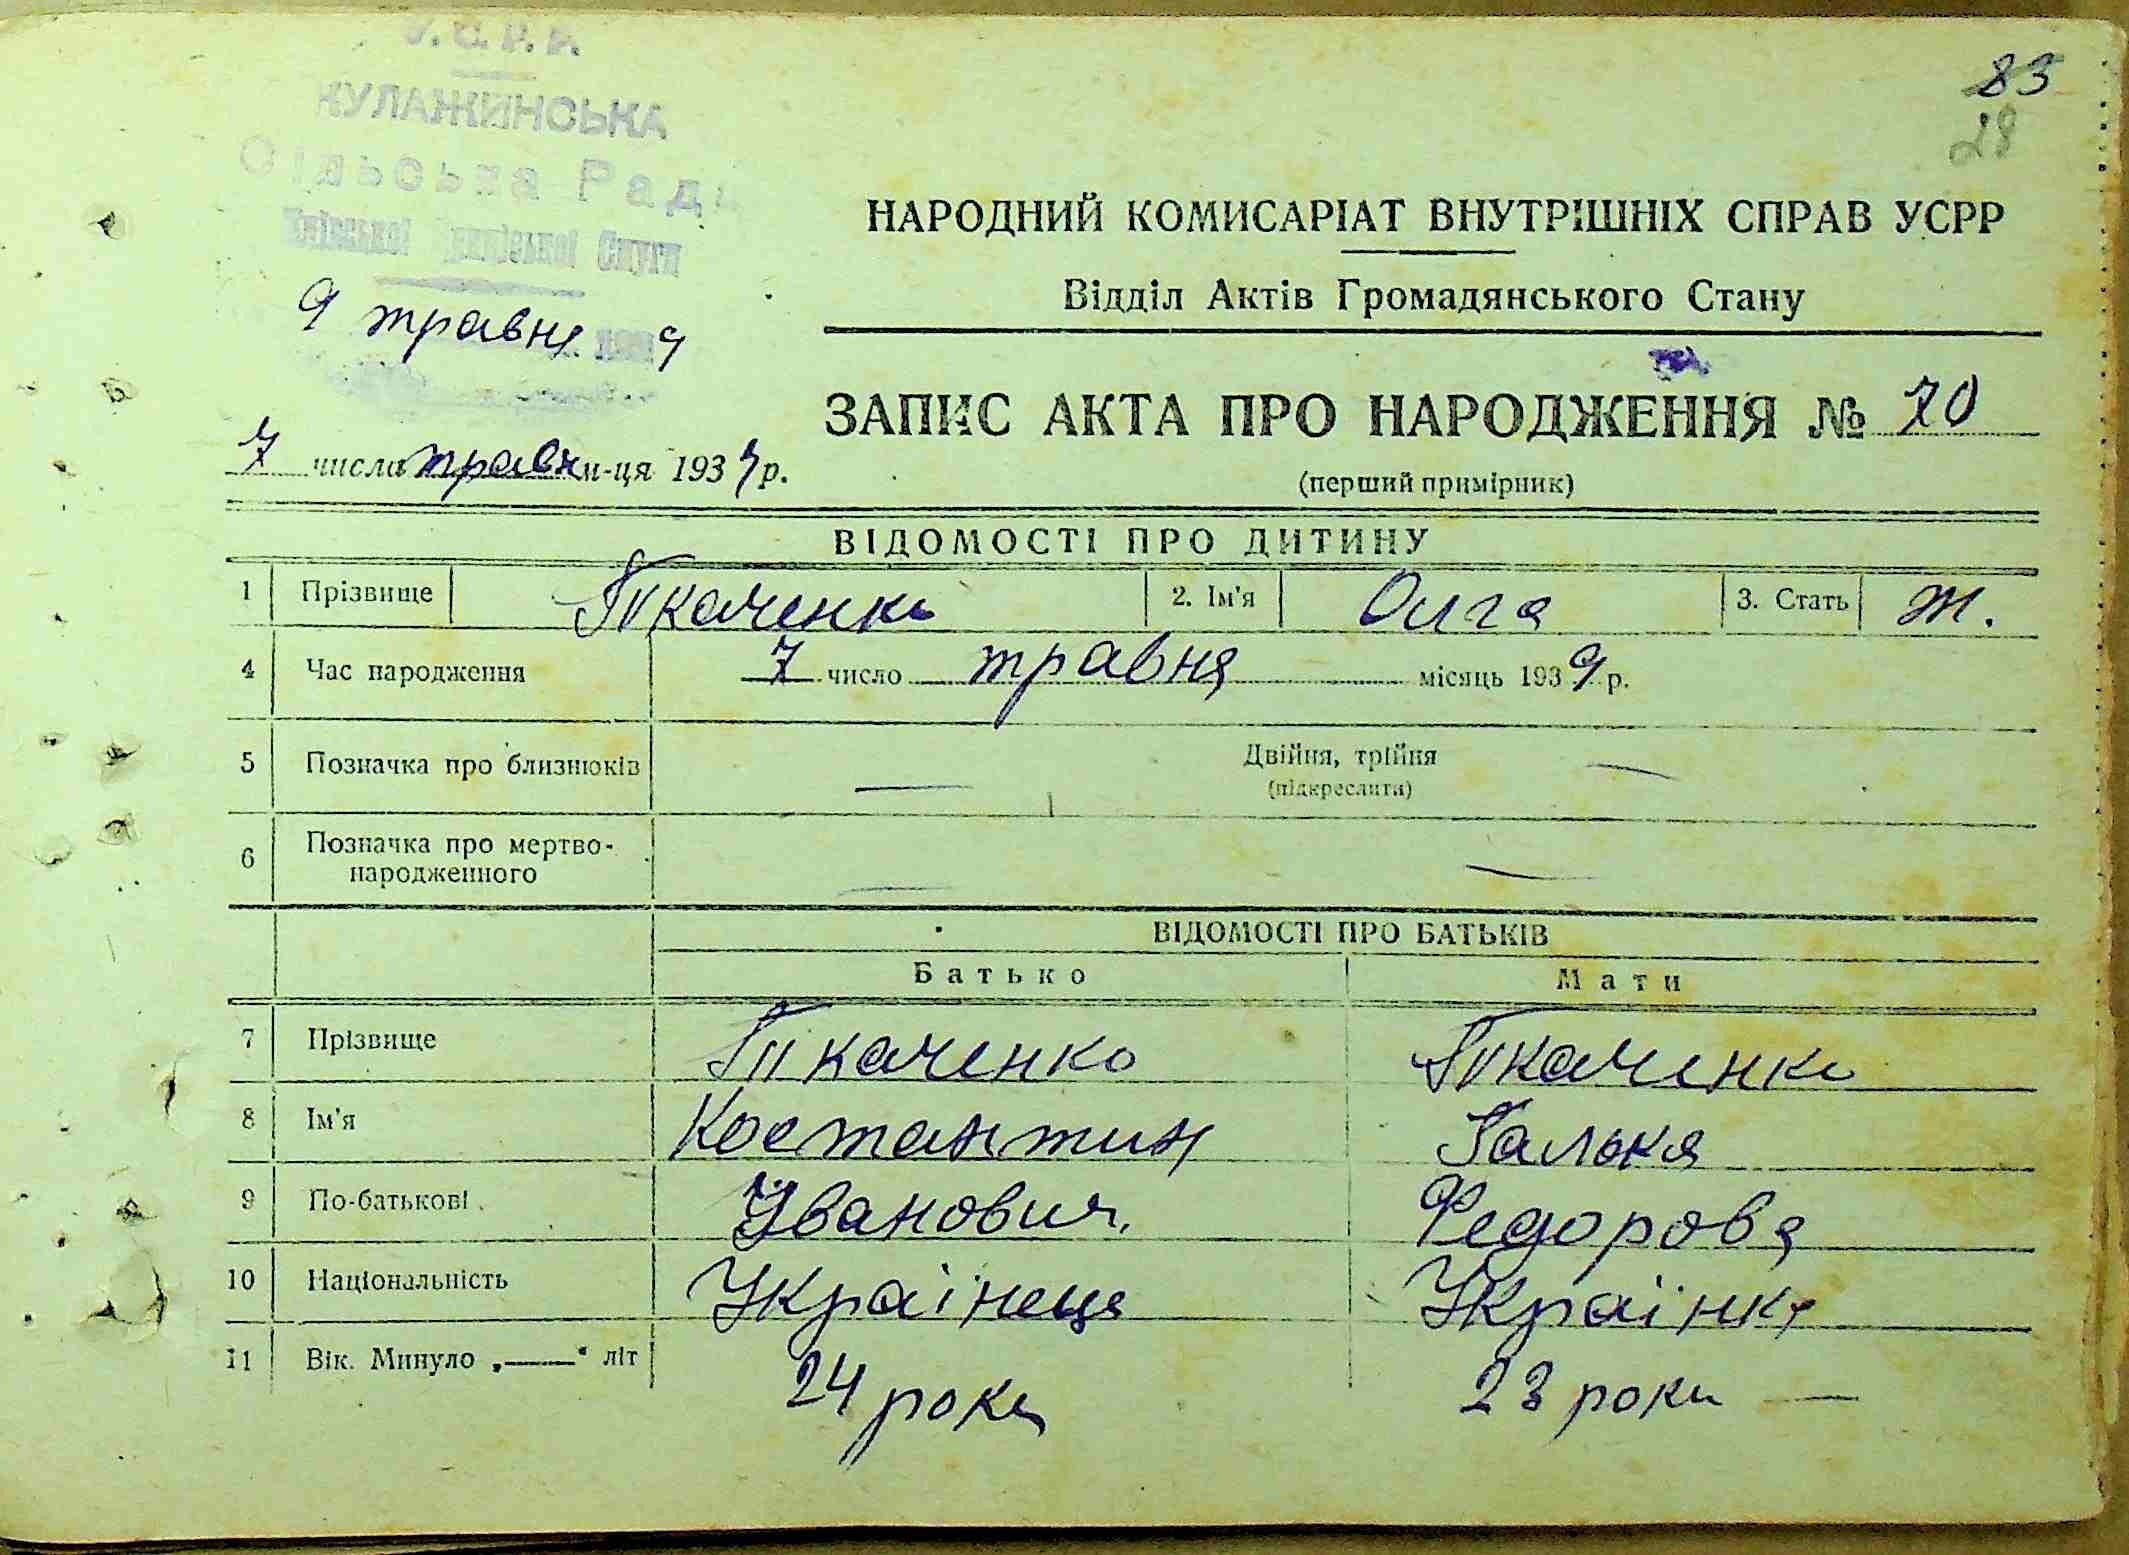 У. С. Р. Р.
КУЛАЖИНСЬКА
Сільська Рада
Київської Округи
9 травня 9
83
28
НАРОДНИЙ КОМИСАРІАТ ВНУТРІШНІХ СПРАВ УСРР
Відділ Актів Громадянського Стану
ЗАПИС АКТА ПРО НАРОДЖЕННЯ № 70
7 числа травн м-ця 1939 р.
(перший примірник)
ВІДОМОСТІ ПРО ДИТИНУ
1 Прізвище Ткаченко 2. Ім'я Олга 3. Стать Ж.
4 Час народження 7 число травня місяць 1939 р.
5 Позначка про близнюків — Двійня, трійня —
(підкреслити)
6 Позначка про мертво-
народженного — —
ВІДОМОСТІ ПРО БАТЬКІВ
Батько Мати
7 Прізвище Ткаченко Ткаченко
8 Ім'я Костантин Галька
9 По-батькові Іванович. Федорова
10 Національність Українець Українка
11 Вік. Минуло „——" літ 24 роки 23 роки —